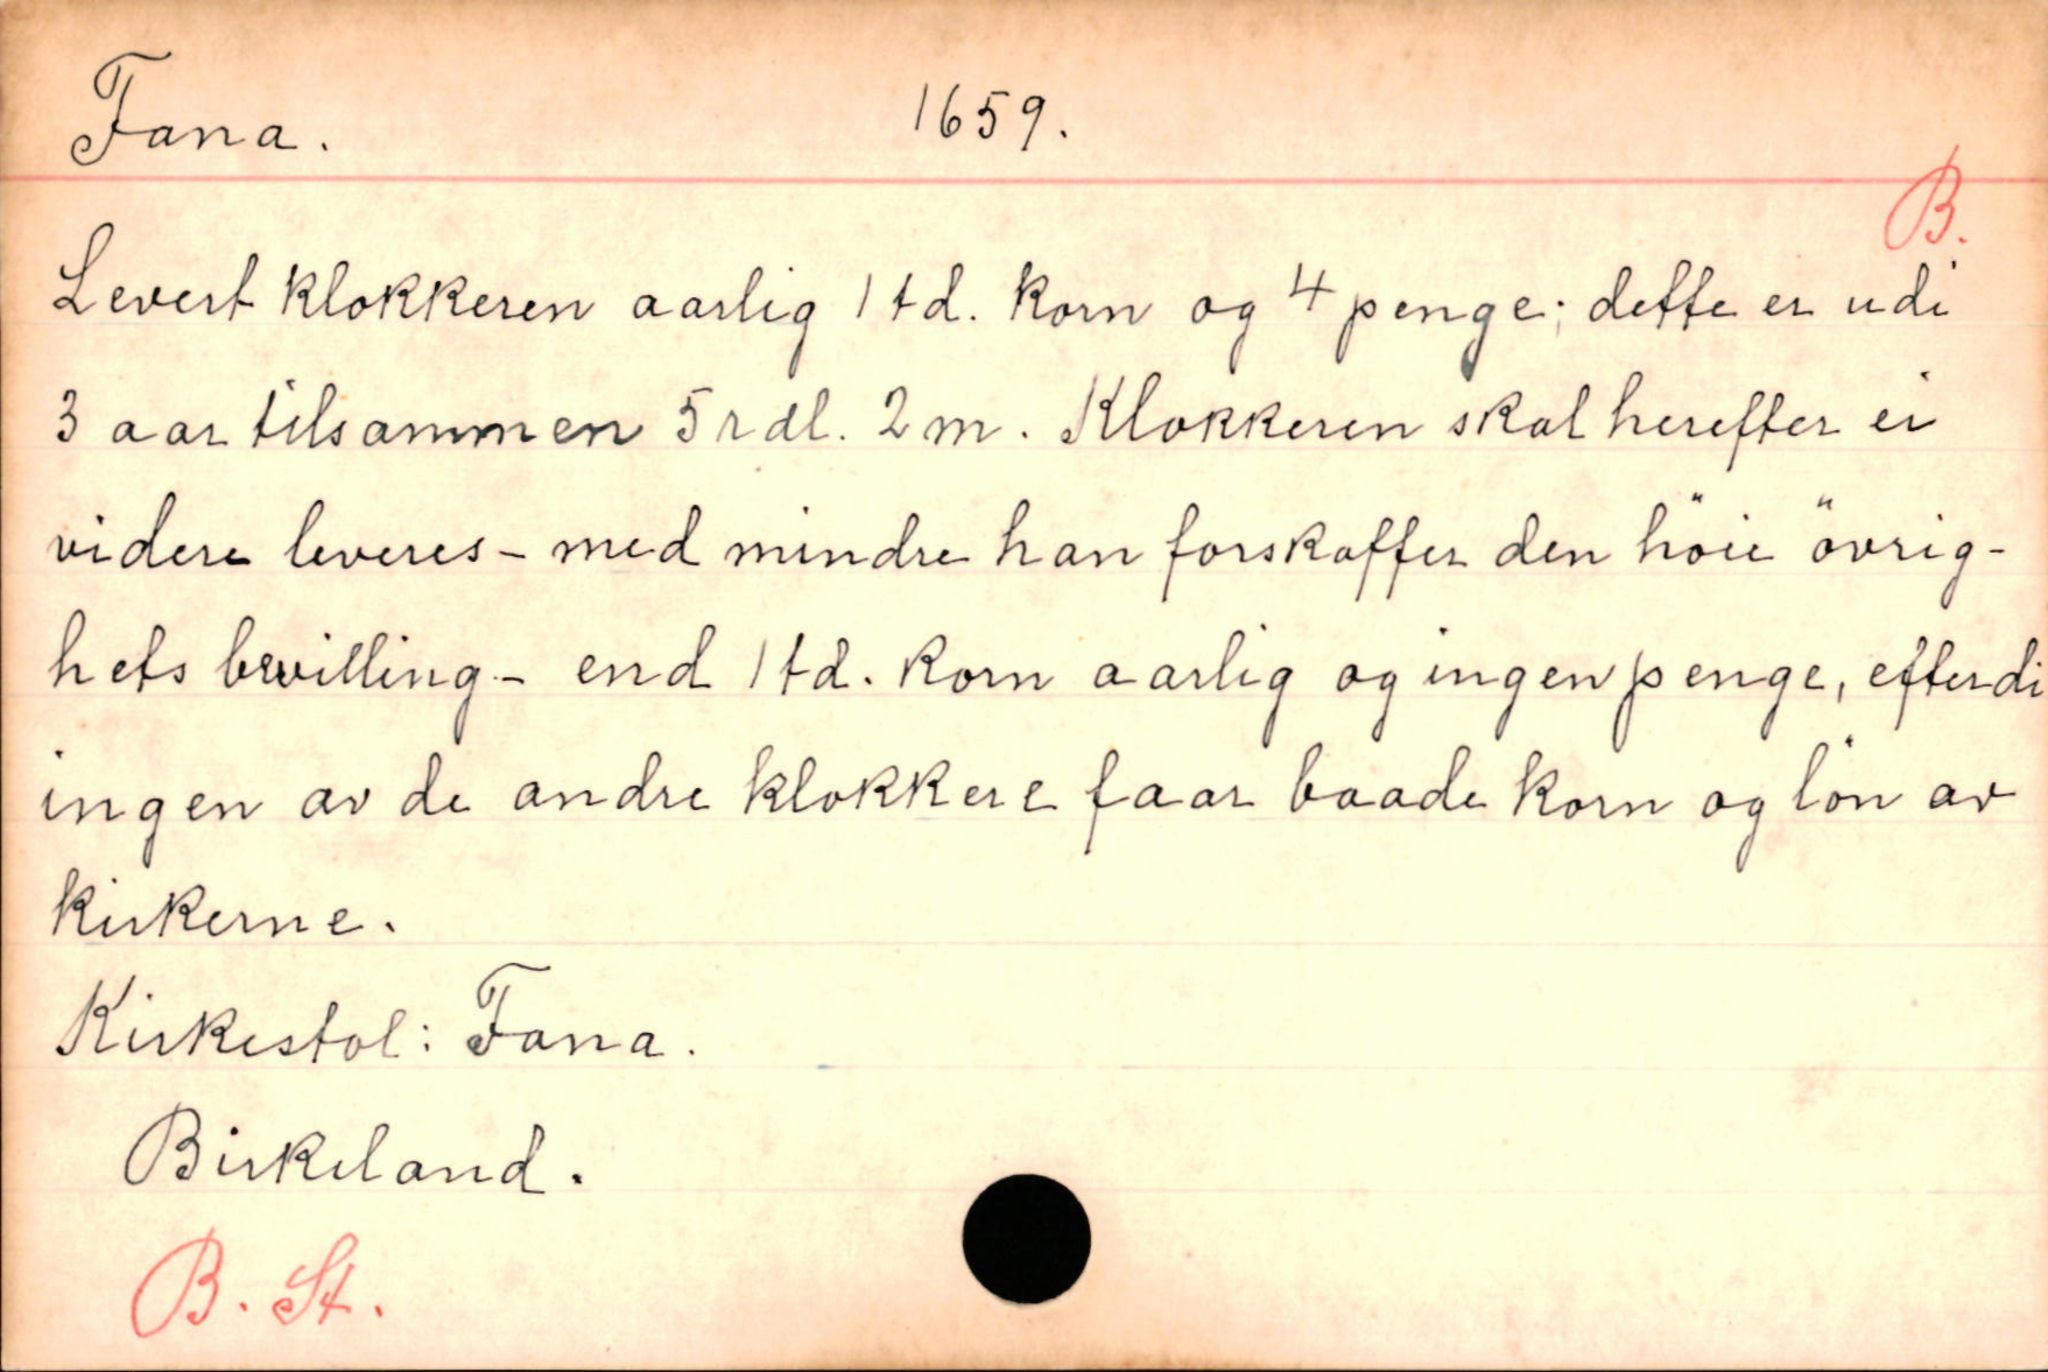 Fana. 1659.
B.
Levert klokkeren aarlig 1 td. korn og 4 penge; dette er udi
3 aar tilsammen 5 rdl. 2 m. Klokkeren skal herefter ei
videre leveres - med mindre han forskaffer den höie övrig-
hets bevilling - end 1 td. korn aarlig og ingen penge, efterdi
ingen av de andre klokkere faar baade korn og lön av
kirkerne.
Kirkestol: Fana.
Birkeland.
B. St.